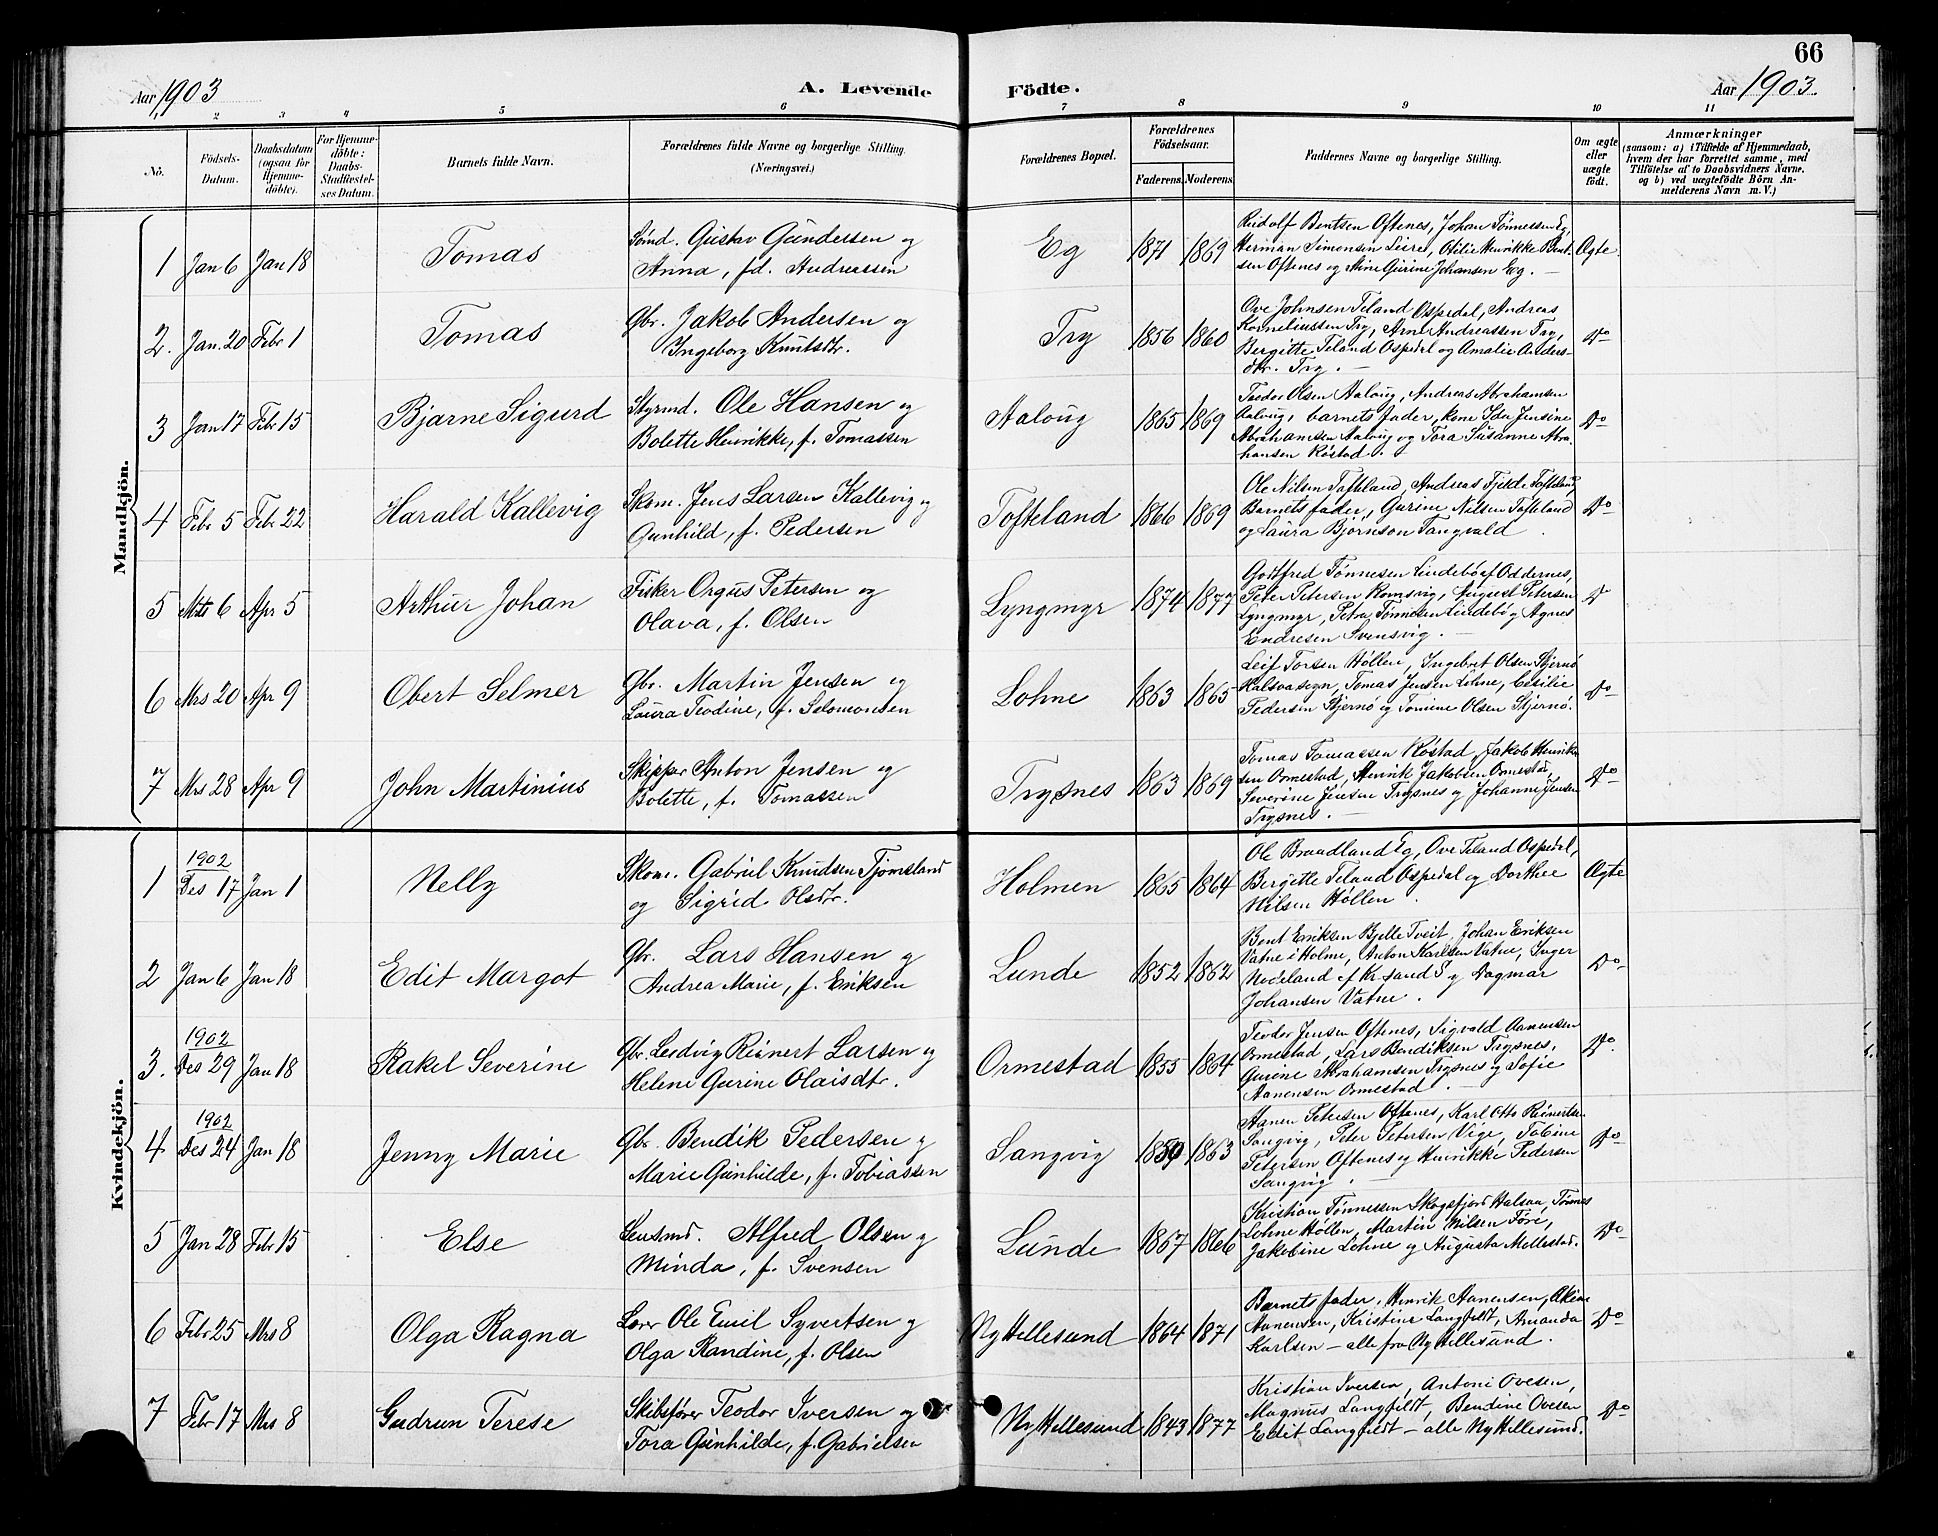 66
Aar 1903
A. Levende Födte.
Aar 1903.
1 2 3 4 5 6 7 8 9 10 11
No.
Födsels-Datum.
Daabsdatum (ogsaa for Hjemmedöbte).
For Hjemmedöbte: Daabs-Stadfæstelses Datum.
Barnets fulde Navn.
Forældrenes fulde Navne og borgerlige Stilling. (Næringsvei.)
Forældrenes Bopæl.
Forældrenes Födselsaar.
Faderens. Moderens.
Faddernes Navne og borgerlige Stilling.
Om ægte eller uægte födt.
Anmærkninger
(saasom: a) i Tilfælde af Hjemmedaab, hvem der har forrettet samme, med Tilföielse af to Daabsvidners Navne. og b) ved uægtefödte Börn Anmelderens Navn m. V.)
Mandkjön.
1 Jan 6 Jan 18 Tomas
Sömd. Gustav Gundersen og
Anna, fd. Andreassen
Eg 1871 1869
Rudolf Bentsen Oftenes, Johan Tønnessen Eg,
Herman Simonsen Leire, Otilie Henrikke Bent-
sen Oftenes og Stine Gurine Johansen Eg. —
Ægte
2. Jan. 20 Febr 1 Tomas
Gbr. Jakob Andersen og
Ingeborg Knutsdtr.
Try 1856 1860
Ove Johnsen Teland Ospedal, Andreas
Korneliussen Try, Arne Andreassen Try,
Bergitte Teland Ospedal og Amalie Anders-
dtr. Try. —
Do
3 Jan 17 Febr 15 Bjarne Sigurd
Styrmd. Ole Hansen og
Bolette Henrikke, f. Tomassen
Aaloug 1865 1869
Teodor Olsen Aaloug, Andreas Abrahamsen
Aaloug, barnets fader, kone Ida Jensine
Abrahamsen Aaloug og Tora Susanne Abra-
hansen Røstad.
Do
4 Febr 5 Febr 22 Harald Kallevig
Skom. Jens Larsen Kallevig og
Gunhild, f. Pedersen
Tofteland 1866 1869
Ole Nilsen Tofteland, Andreas Fjelde Tofteland,
Barnets fader, Gurine Nilsen Tofteland
og Laura Bjørnson Tangvald.
Do
5 Mrs 6 Apr 5 Arthur Johan
Fisker Orgus Petersen og
Olava, f. Olsen
Lyngmyr 1874 1877
Godtfred Tønnesen Lindebø af Oddernes,
Peter Petersen Romsvig, August Petersen
Lyngmyr, Petra Tønnesen Lindebø og Agnes
Endresen Svensvig. —
Do
6 Mrs 20 Apr 9 Obert Selmer
Gbr. Martin Jensen og
Laura Teodine, f. Salomonsen
Lohne 1863 1865
Leif Torsen Høllen, Ingebret Olsen Stjernø
Halsvasogn, Tomas Jensen Lohne, Cecilie
Pedersen Stjernø og Tomine Olsen Stjernø.
Do
7 Mrs 28 Apr 9 John Martinius
Skipper Anton Jensen og
Bolette, f. Tomassen
Trysnes 1863 1869
Tomas Tomassen Røstad, Jakob Henrik-
sen Ormestad, Henrik Jakobsen Ormestad,
Severine Jensen Trysnes og Johanne Jensen
Trysnes. —
Do
Kvindekjön.
1 1902 Des 17 Jan 1 Nelly
Skom. Gabriel Knudsen Tjomsland
og Sigrid Olsdtr.
Holmen 1865 1864
Ole Braadland Eg, Ove Teland Ospedal,
Bergitte Teland Ospedal og Dorthee
Nilsen Høllen.
Ægte
2 Jan 6 Jan 18 Edit Margot
Gbr. Lars Hansen og
Andrea Marie, f. Eriksen
Lunde 1852 1862
Bent Eriksen Bjelle Tveit, Johan Eriksen
Vatne i Holme, Anton Karlsen Vatne, Inger
Nodeland af Kr.sand S og Dagmar
Johansen Vatne.
Do
3. 1902 Des 29 Jan 18 Rakel Severine
Gbr. Lesdvig Reinert Larsen og
Helene Gurine Olaisdtr.
Ormestad 1855 1864
Teodor Jensen Oftenes, Sigvald Aanensen
Ormestad, Lars Bendiksen Trysnes,
Gurine Abrahamsen Trysnes og Sofie
Aanensen Ormestad. —
Do.
4 1902 Des 24 Jan 18 Jenny Marie
Gbr. Bendik Pedersen og
Marie Gunhilde, f. Tobiassen
Sangvig 1859 1863
Aanen Petersen Oftenes, Karl Otto Reinertsen
Sangvig, Peter Petersen Vige, Tobine
Petersen Oftenes og Henrikke Pedersen
Sangvig. —
Do
5 Jan 28 Febr 15 Else
Lensmd. Alfred Olsen og
Minda, f. Svensen
Lunde 1867 1866
Kristian Tønnessen Skogsfjord Halsaa, Tønnes
Lohne Høllen, Martin Nilsen Føre,
Jakobine Lohne og Augusta Mellestad.
Do
6 Febr 25 Mrs 8 Olga Ragna
Lærer Ole Emil Syvertsen og
Olga Randine, f. Olsen
Ny Hellesund 1864 1871
Barnets fader, Henrik Aanensen,
Aanensen, Kristine Langfeldt, Amanda
Karlsen — alle fra Ny Hellesund.
Do
7 Febr 17 Mrs 8 Gudrun Terese
Skibsfører Teodor Iversen og
Tora Gunhilde, f. Gabrielsen
Ny Hellesund 1843 1877
Kristian Iversen, Antoni Ovesen,
Magnus Langfeldt, Bendine Ovesen
Edit Langfeldt — alle Ny Hellesund.
Do